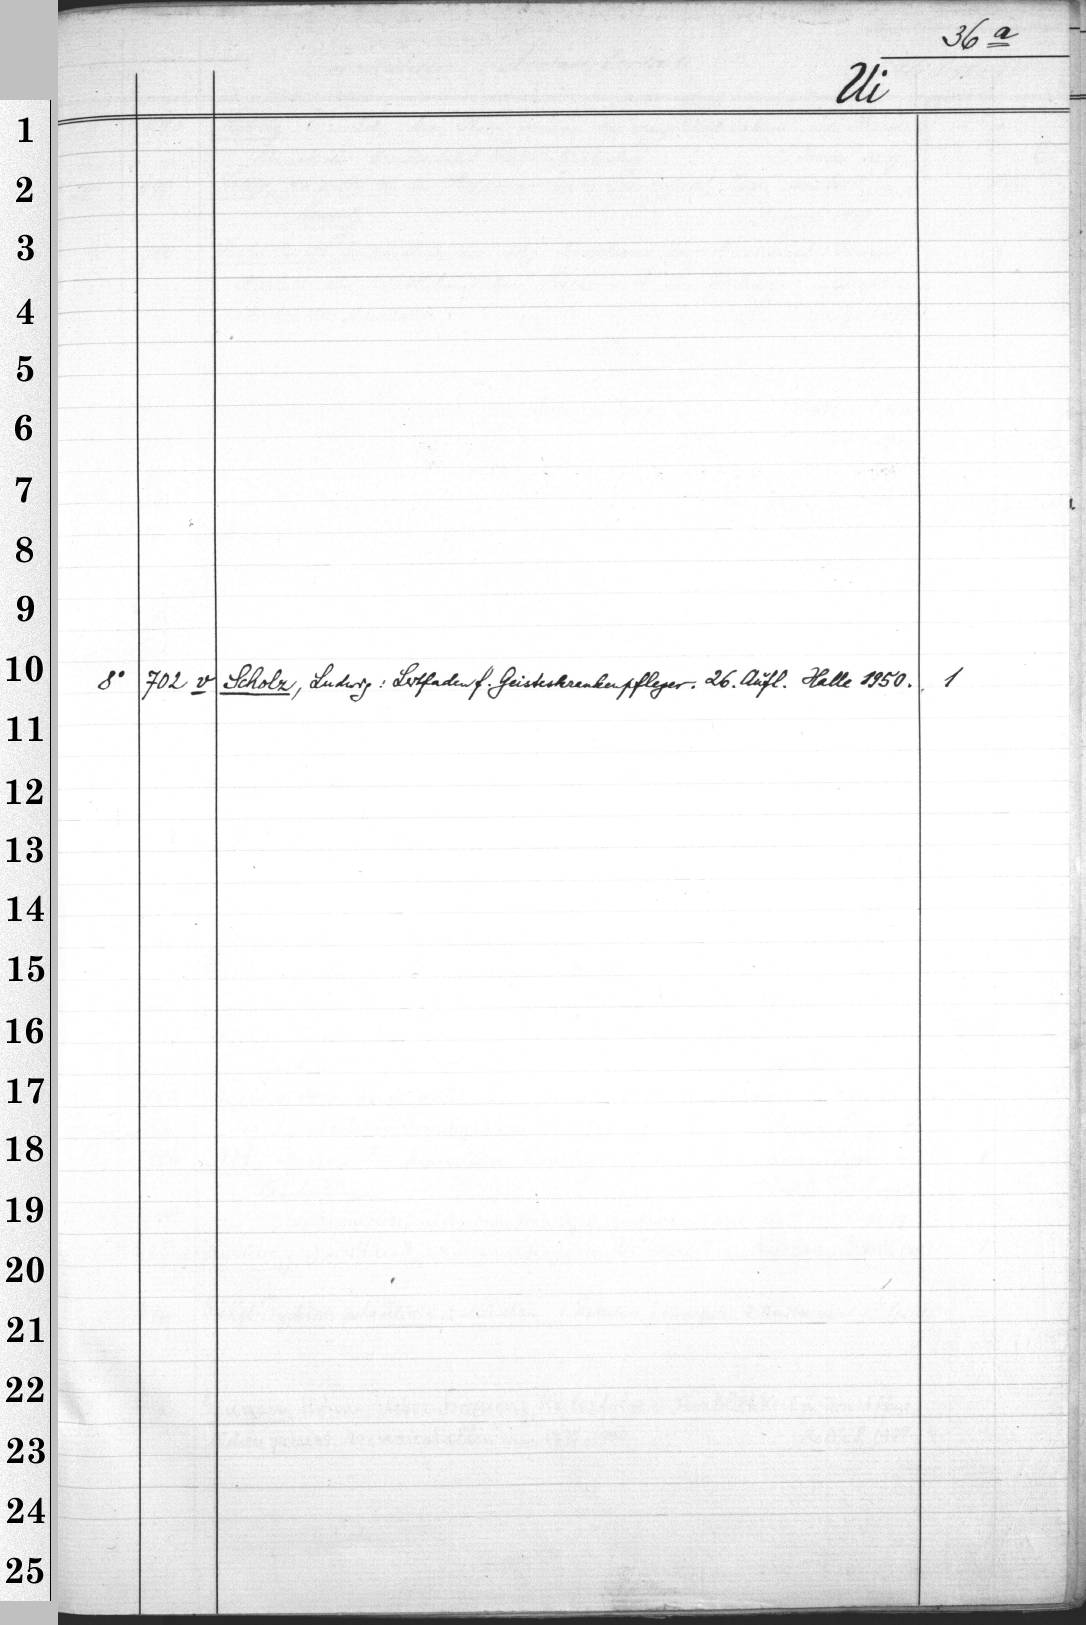 36 a
Ui
1
2
3
4
5
6
7
8
9
10
8° 702 v Scholz, Ludwig: Leitfaden f. Geisteskrankenpfleger. 26. Aufl. Halle 1950. 1
11
12
13
14
15
16
17
18
19
20
21
22
23
24
25